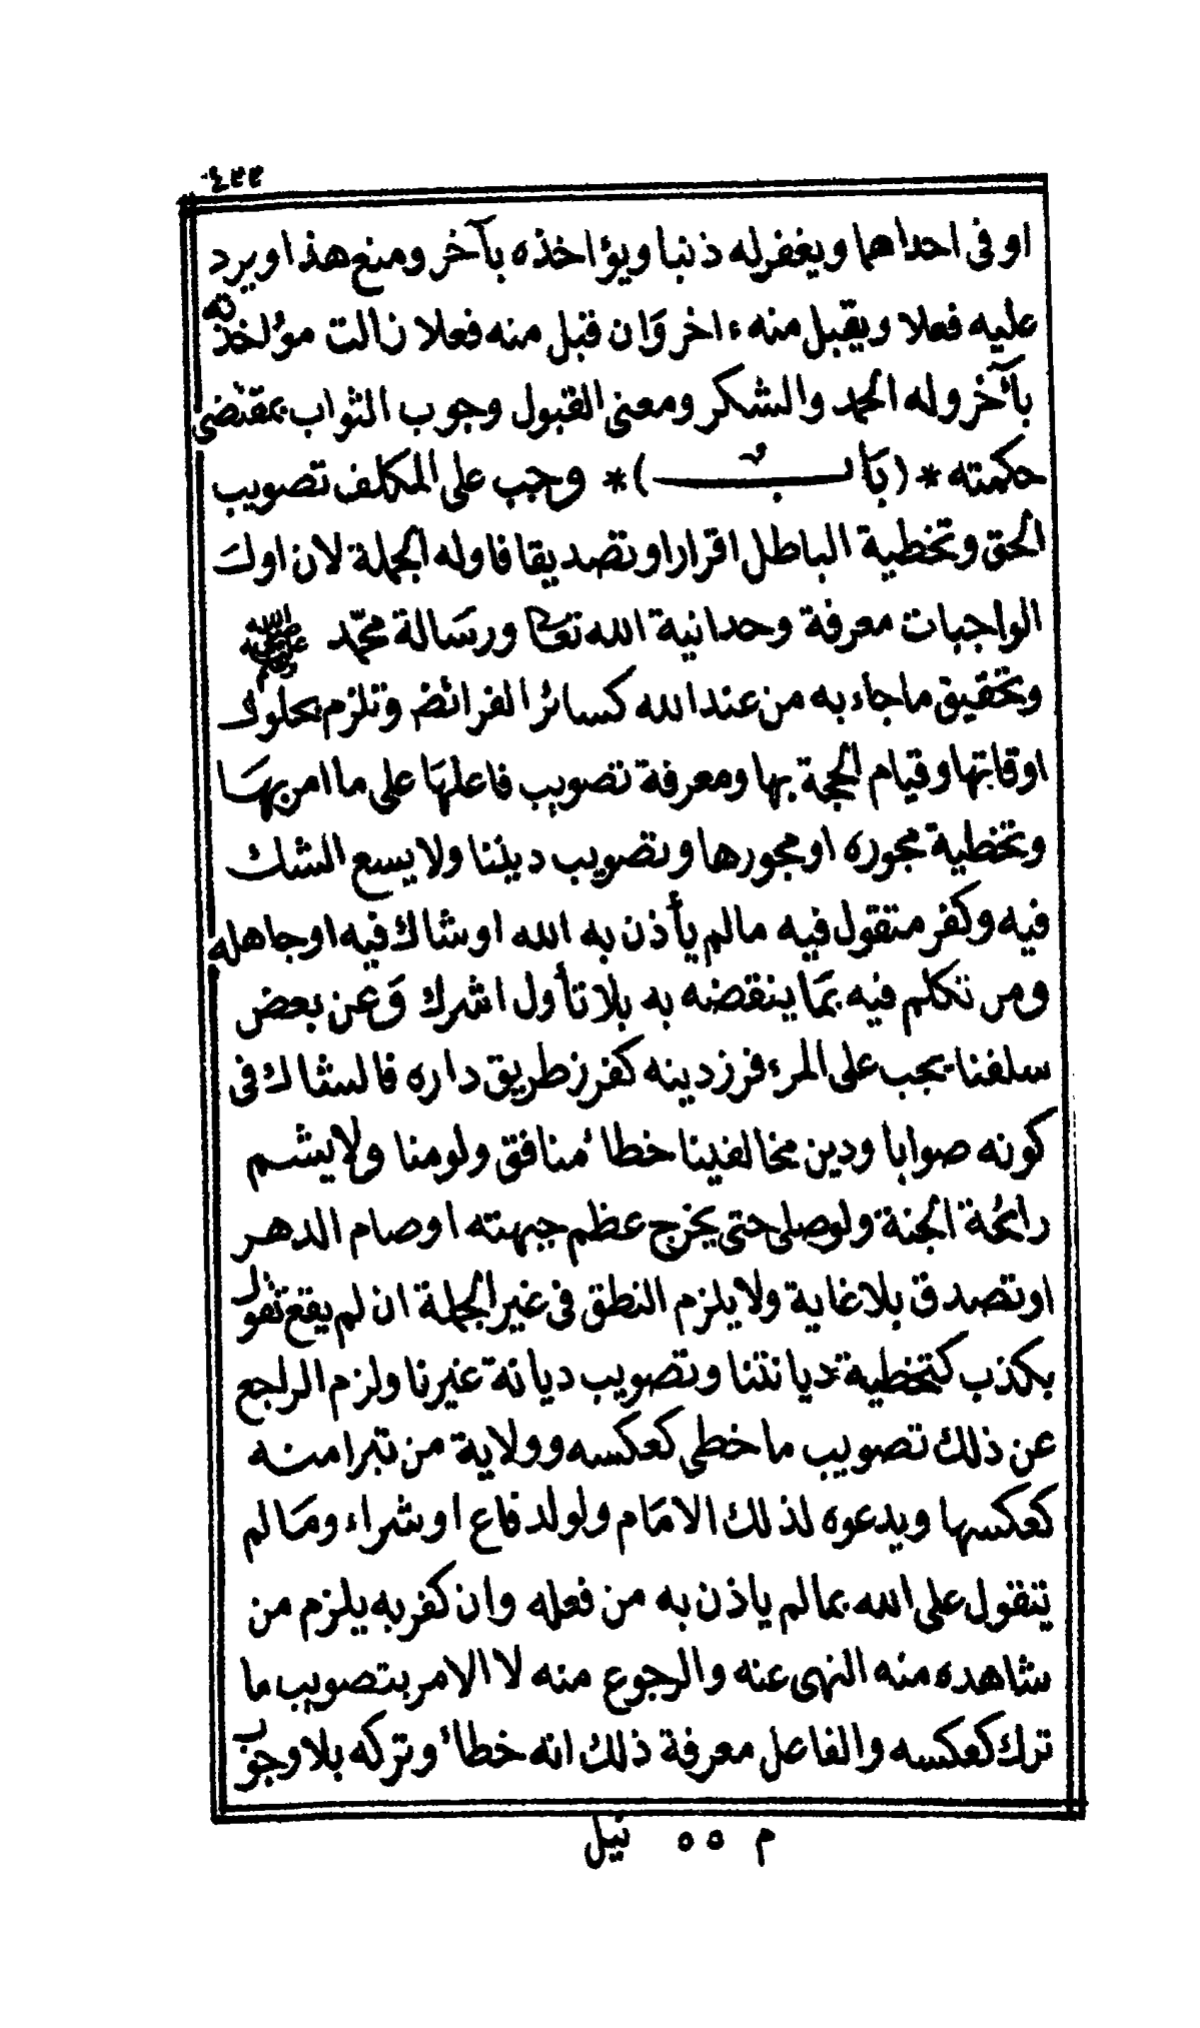 ٤٣٣
او فى احداهما ويغفر له ذنبا ويؤاخذه بآخر ومنع هذا او يرد
عليه فعلا ويقبل منه ءاخر وَان قبل منه فعلا زالت مؤاخذته
بآخر وله الحمد والشكر ومعنى القبول وجوب الثواب بمقتضى
حكمته * ( بَابٌ ) * وجب على المكلف تصويب
الحق وتخطية الباطل اقرارا وتصديقا فاوله الجملة لان اول
الواجبات معرفة وحدانية الله تعالى ورسَالة محمّد صلى الله عليه وسلم
وتحقيق ما جاء به من عند الله كسائر الفرائض وتلزم بحلول
اوقاتها وقيام الحجة بها ومعرفة تصويب فاعلهَا على ما امر بهَا
وتخطية مجوره او مجورها وتصويب ديننا ولا يسع الشك
فيه وكفر متقول فيه ما لم يأذن به الله او شاك فيه او جاهله
ومن تكلم فيه بمَا ينقضه به بلا تأول اشرك وَعن بعض
سلفنا يجب على المرء فرز دينه كفرز طريق داره فالشاك فى
كونه صوابا ودين مخالفينا خطأ منافق ولو منا ولا يشم
رائحة الجنة ولو صلى حتى يخرج عظم جبهته او صام الدهر
او تصدق بلا غاية ولا يلزم النطق فى غير الجملة ان لم يقع تقول
بكذب كتخطية ديانتنا وتصويب ديانة غيرنا ولزم الراجع
عن ذلك تصويب ما خطى كعكسه وولاية من تبرا منه
كعكسها ويدعوه لذلك الامَام ولو لدفاع او شراء ومَا لم
يتقول على الله بما لم ياذن به من فعله وان كفر به يلزم من
شاهده منه النهى عنه والرجوع منه لا الامر بتصويب ما
ترك كعكسه والفاعل معرفة ذلك انه خطأ وتركه بلا وجوب
م ٥٥ نيل